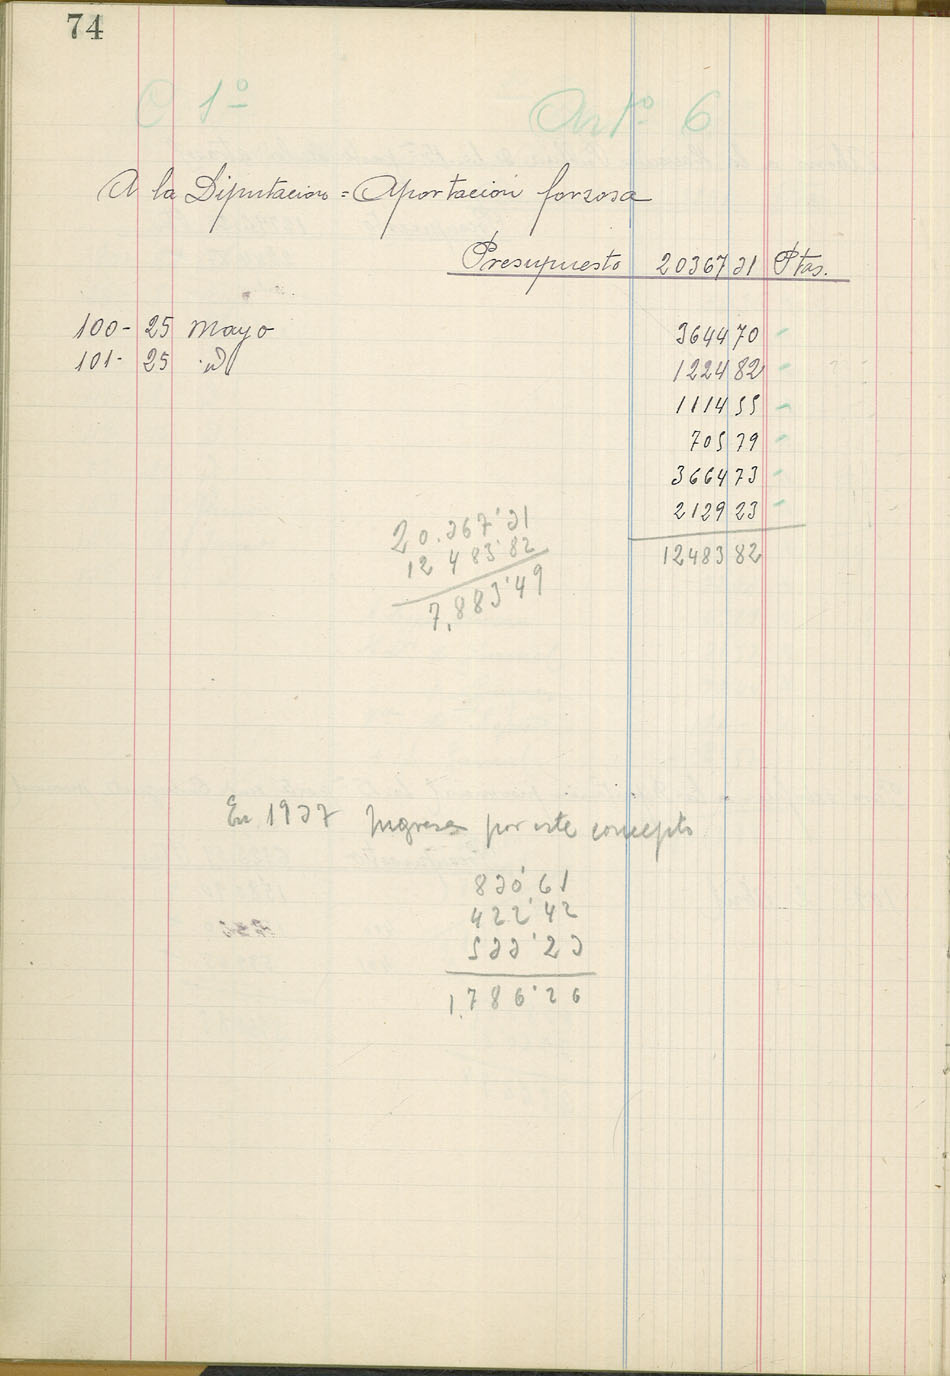 74
C 1º Artº 6
A la Diputacion = Aportación forzosa
Presupuesto 20367 31 Ptas.
100- 25 Mayo 3644 70
101- 25 id 1224 82
1114 55
705 79
3664 73
2129 23
12483 82
20.367'31
12 483'82
7.883'49
En 1937 Ingresos por este concepto
830'61
422'42
533'23
1.786'26